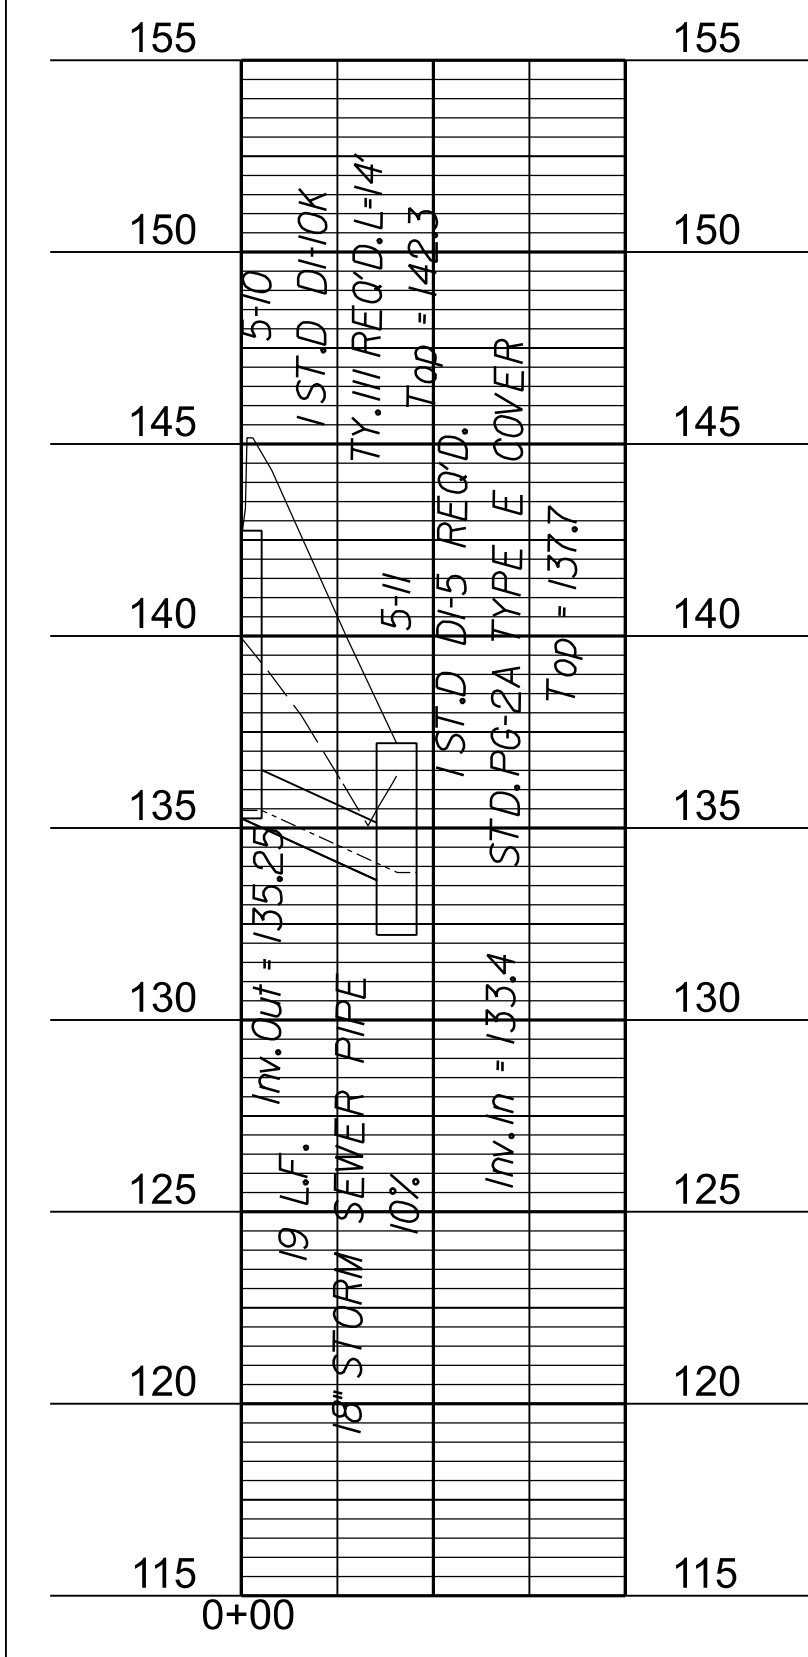 155 155
150 150
145 145
140 140
135 135
130 130
125 125
120 120
115 115
0+00
5-10
1 ST.D DI-10K
TY.III REQ'D. L=14'
Top = 142.3
5-11
1 ST.D DI-5 REQ'D.
STD.PG-2A TYPE E COVER
Top = 137.7
Inv.Out = 135.25
19 L.F.
18" STORM SEWER PIPE
10%
Inv.In = 133.4